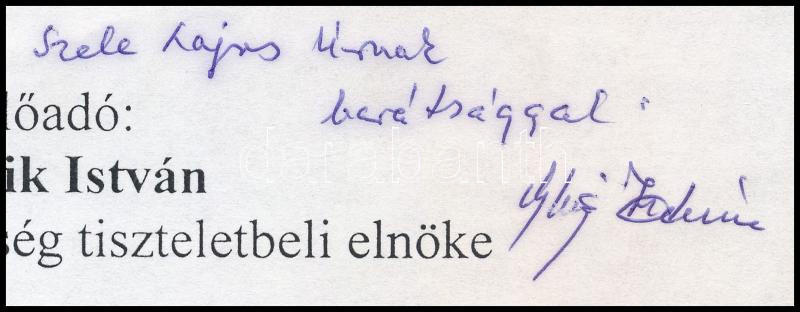 Szele Lajos Úrnak
lőadó:
barátsággal:
ik István
darabanth
ség tiszteletbeli elnöke